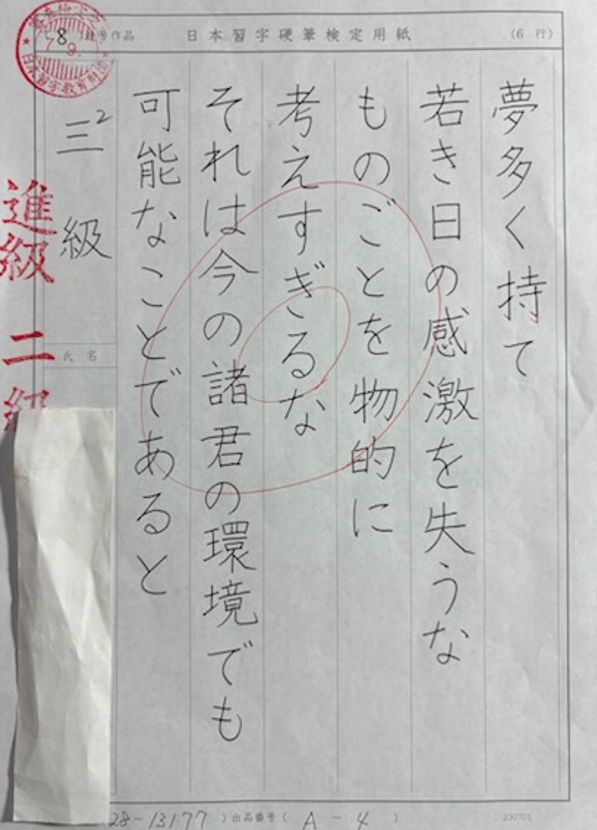 日本習字硬筆検定用紙
(6 行)
夢多く持て
若き日の感激を失うな
ものごとを物的に
考えすぎるな
それは今の諸君の環境でも
可能なことであると
8
号作品
三2 級
氏名
進級 二級
日本習字教育財団
28-13177 ) 出品番号 ( A - 4 )
230701